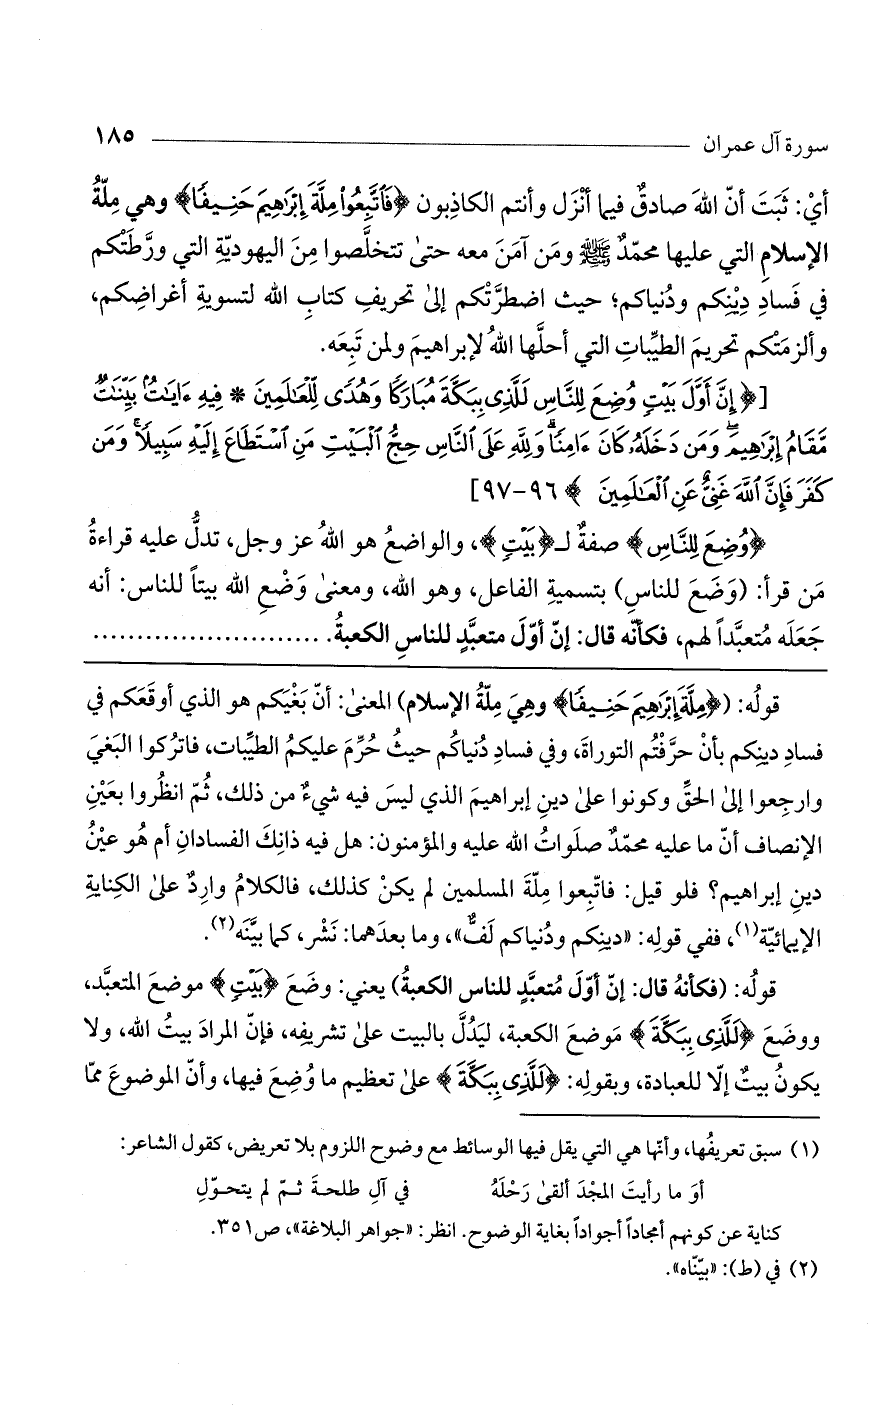 سورة آل عمران ١٨٥
أيْ: ثَبَتَ أنّ اللهَ صادقٌ فيما أنْزَل وأنتم الكاذِبون ﴿فَاتَّبِعُوا مِلَّةَ إِبْرَاهِيمَ حَنِيفًا﴾ وهي مِلّةُ
الإسلامِ التي عليها محمّدٌ ﷺ ومَن آمَنَ معه حتىٰ تتخلَّصوا مِنَ اليهوديّةِ التي ورَّطَتْكم
في فَسادِ دِيْنِكم ودُنياكم؛ حيث اضطرَّتْكم إلىٰ تحريفِ كتابِ الله لتسويةِ أغراضِكم،
وألزمَتْكم تحريمَ الطيِّباتِ التي أحلَّها اللهُ لإبراهيمَ ولمن تَبِعَه.
[﴿إِنَّ أَوَّلَ بَيْتٍ وُضِعَ لِلنَّاسِ لَلَّذِى بِبَكَّةَ مُبَارَكًا وَهُدًى لِّلْعَالَمِينَ * فِيهِ ءَايَٰتٌ بَيِّنَٰتٌ
مَّقَامُ إِبْرَٰهِيمَ وَمَن دَخَلَهُۥ كَانَ ءَامِنًا وَلِلَّهِ عَلَى النَّاسِ حِجُّ الْبَيْتِ مَنِ اسْتَطَاعَ إِلَيْهِ سَبِيلًا وَمَن
كَفَرَ فَإِنَّ اللَّهَ غَنِيٌّ عَنِ الْعَالَمِينَ﴾ ٩٦-٩٧]
﴿وُضِعَ لِلنَّاسِ﴾ صفةٌ لـ﴿بَيْتٍ﴾، والواضعُ هو اللهُ عز وجل، تدلُّ عليه قراءةُ
مَن قرأ: (وَضَعَ للناسِ) بتسميةِ الفاعل، وهو الله، ومعنىٰ وَضْعِ الله بيتاً للناس: أنه
جَعَلَه مُتعبَّداً لهم، فكأنّه قال: إنّ أوّلَ متعبَّدٍ للناسِ الكعبةُ. ..........................
قولُه: (﴿مِلَّةَ إِبْرَاهِيمَ حَنِيفًا﴾ وهِيَ مِلّةُ الإسلام) المعنىٰ: أنّ بَغْيَكم هو الذي أوقَعَكم في
فسادِ دينِكم بأنْ حرَّفْتُم التوراةَ، وفي فسادِ دُنياكُم حيثُ حُرِّمَ عليكمُ الطيِّبات، فاترُكوا البَغيَ
وارجِعوا إلىٰ الحقِّ وكونوا علىٰ دينِ إبراهيمَ الذي ليسَ فيه شيءٌ من ذلك، ثُمّ انظُروا بعَيْنِ
الإنصاف أنّ ما عليه محمّدٌ صلَواتُ الله عليه والمؤمنون: هل فيه ذانِكَ الفسادانِ أم هُو عيْنُ
دينِ إبراهيم؟ فلو قيل: فاتّبِعوا مِلّةَ المسلمين لم يكنْ كذلك، فالكلامُ وارِدٌ علىٰ الكِنايةِ
الإيمائيّة(١)، ففي قولِه: «دينِكم ودُنياكم لَفٌّ»، وما بعدَهما: نَشْر، كما بيَّنَه(٢).
قولُه: (فكأنهُ قال: إنّ أوّلَ مُتعبَّدٍ للناس الكعبةُ) يعني: وضَعَ ﴿بَيْتٍ﴾ موضعَ المتعبَّد،
ووضَعَ ﴿لَلَّذِى بِبَكَّةَ﴾ مَوضعَ الكعبة، ليَدُلَّ بالبيت علىٰ تشريفِه، فإنّ المرادَ بيتُ الله، ولا
يكونُ بيتٌ إلّا للعبادة، وبقولِه: ﴿لَلَّذِى بِبَكَّةَ﴾ علىٰ تعظيم ما وُضِعَ فيها، وأنّ الموضوعَ ممّا
(١) سبق تعريفُها، وأنّها هي التي يقل فيها الوسائط مع وضوح اللزوم بلا تعريض، كقول الشاعر:
أوَ ما رأيتَ المجْدَ ألقىٰ رَحْلَهُ في آلِ طلحةَ ثمّ لم يتحوّلِ
كناية عن كونهم أمجاداً أجواداً بغاية الوضوح. انظر: «جواهر البلاغة»، ص٣٥١.
(٢) في (ط): «بيّنّاه».